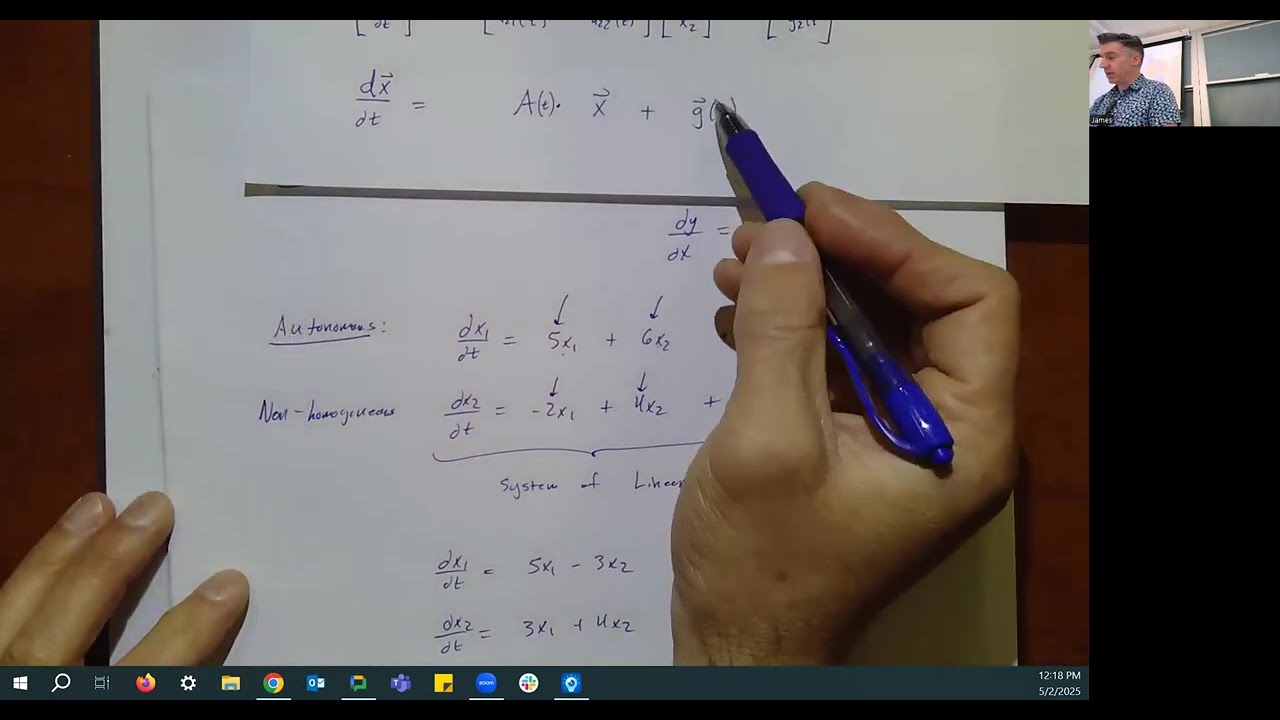 dx⃗/dt = A(t)· x⃗ + g⃗(
dy/dx =
Autonomous: dx₁/dt = 5x₁ + 6x₂
Non-homogeneous dx₂/dt = -2x₁ + 4x₂ +
System of Linear
dx₁/dt = 5x₁ - 3x₂
dx₂/dt = 3x₁ + 4x₂
James
zoom
12:18 PM
5/2/2025